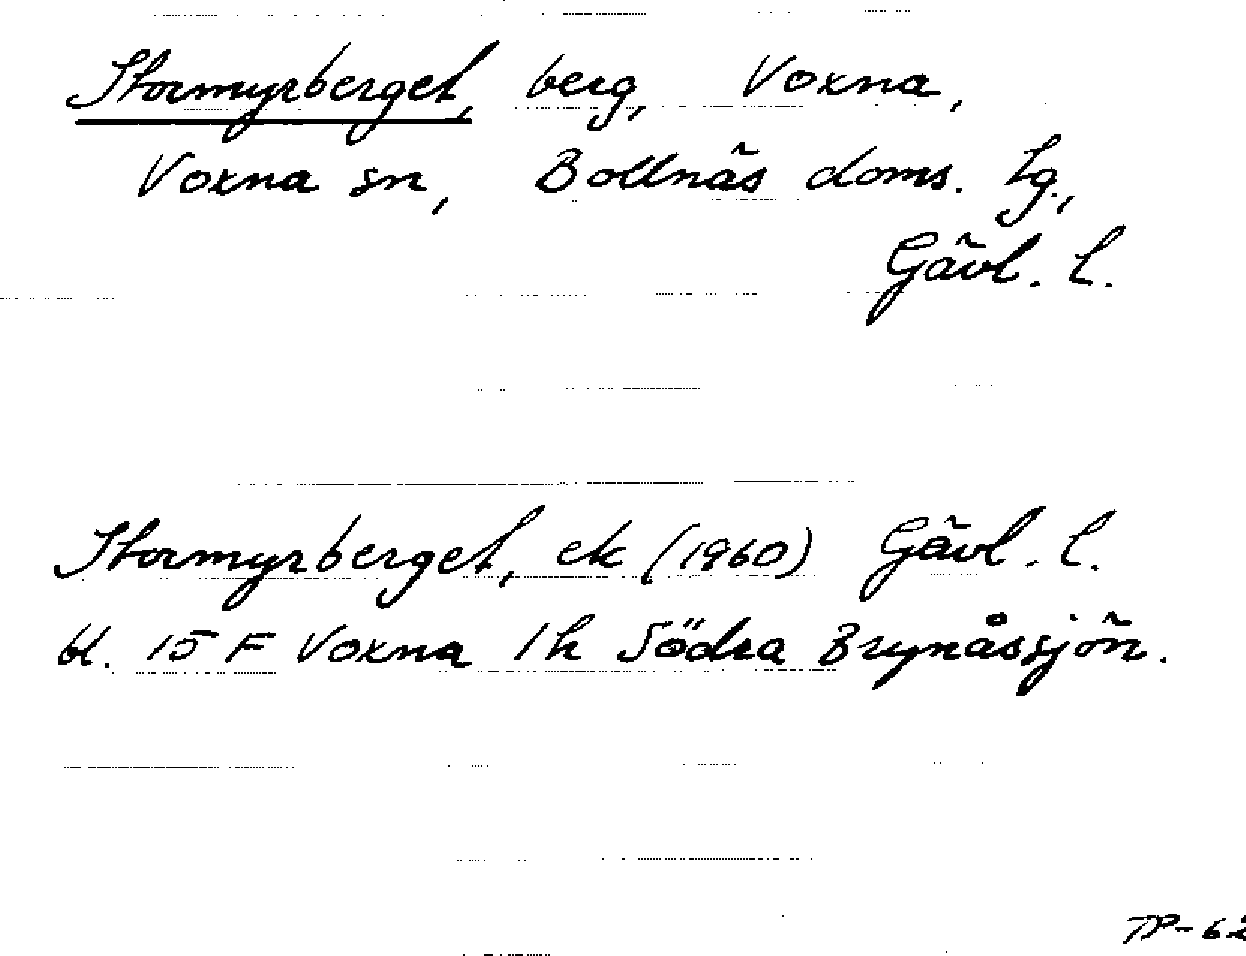 Stormyrberget, berg, Voxna,
Voxna sn, Bollnäs doms. tg,
Gävl. l.
Stormyrberget, ek (1960) Gävl. l.
bl. 15 F Voxna 1 h Södra Brynåssjön.
TP-62